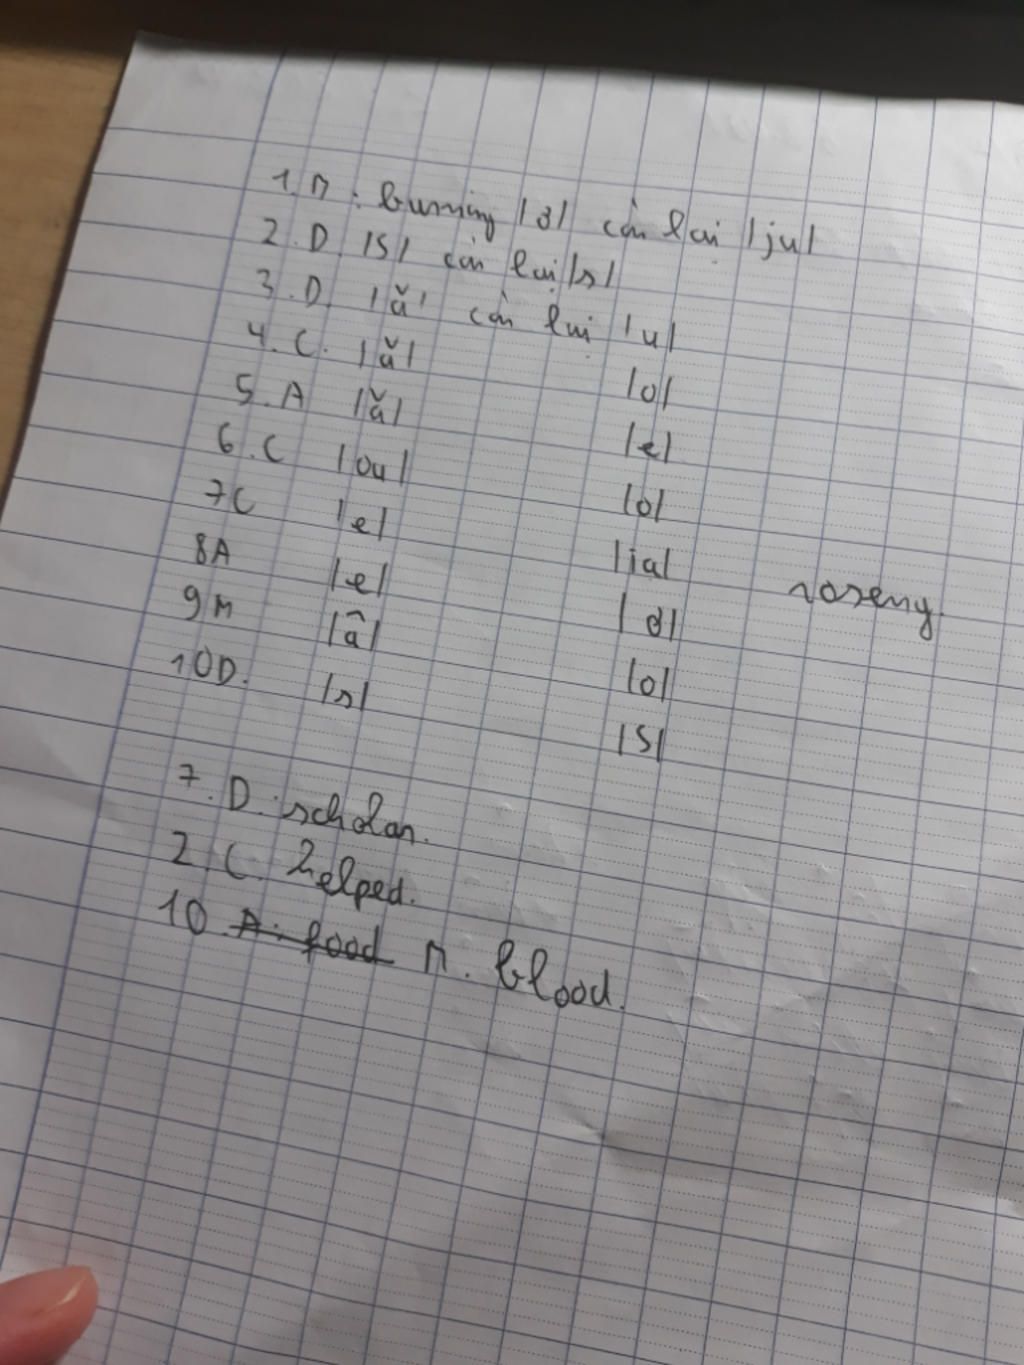 1. B : burning |ə| còn lại |ju|
2. D. |S| còn lại |s|
3. D. |ă| còn lại |u|
4. C. |ă| |o|
5. A |ă| |e|
6. C |ou| |o|
7C |e| |ia|
8A |e| |ə|
9B |â| |o|
10D. |s| |S|
7. D. scholar.
2. C. helped.
10 A. food B. blood.